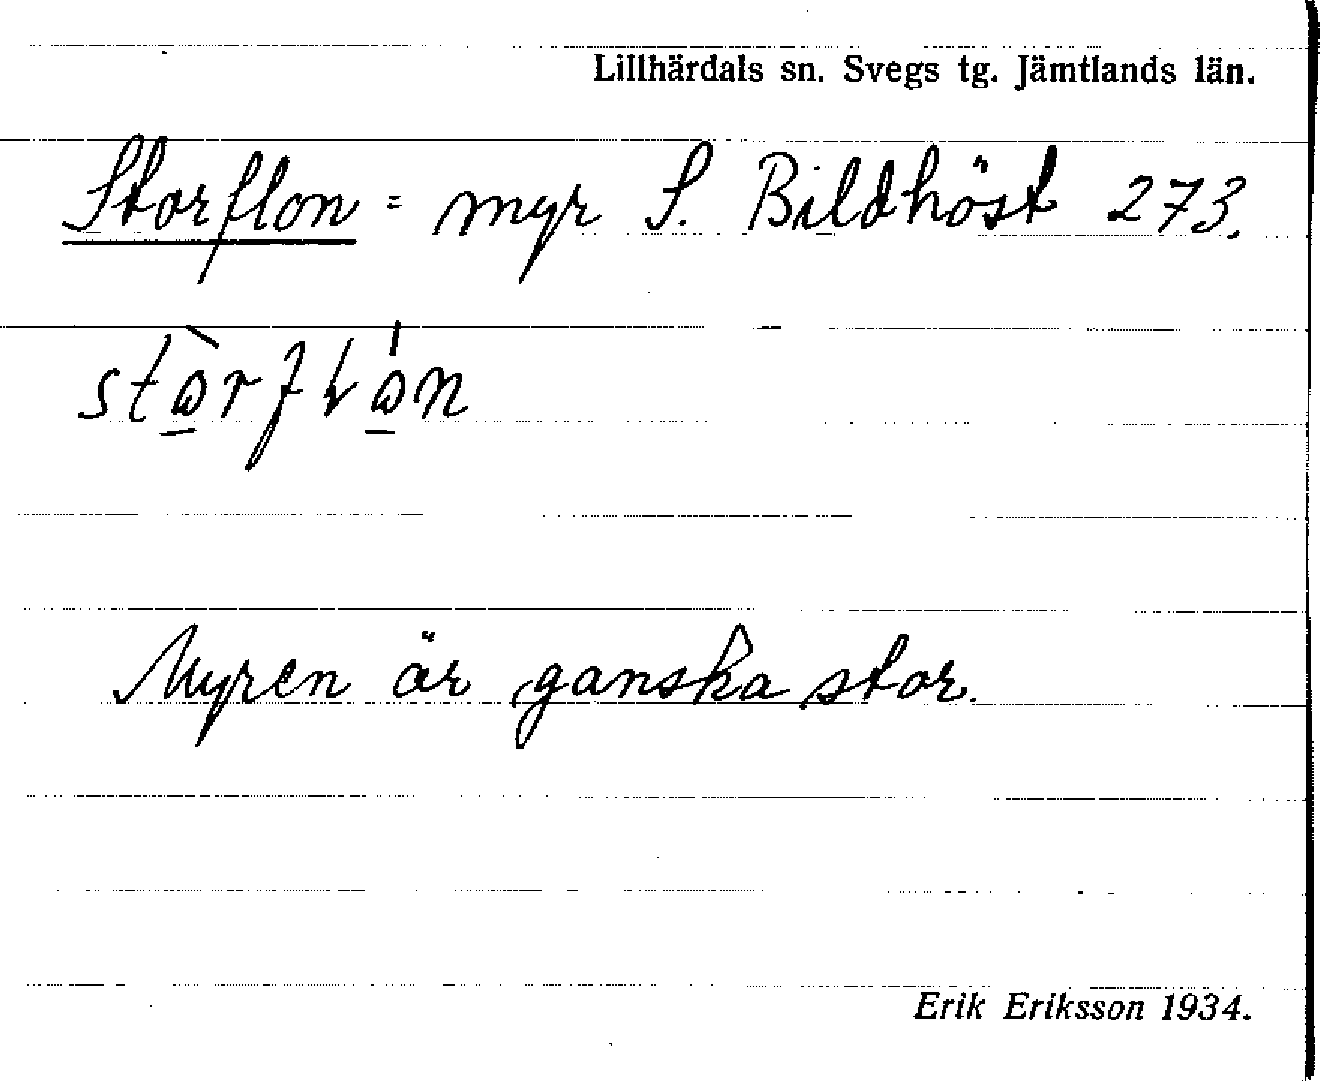 Lillhärdals sn. Svegs tg. Jämtlands län.
Storflon = myr S. Bildhöst 273.
Myren är ganska stor.
Erik Eriksson 1934.